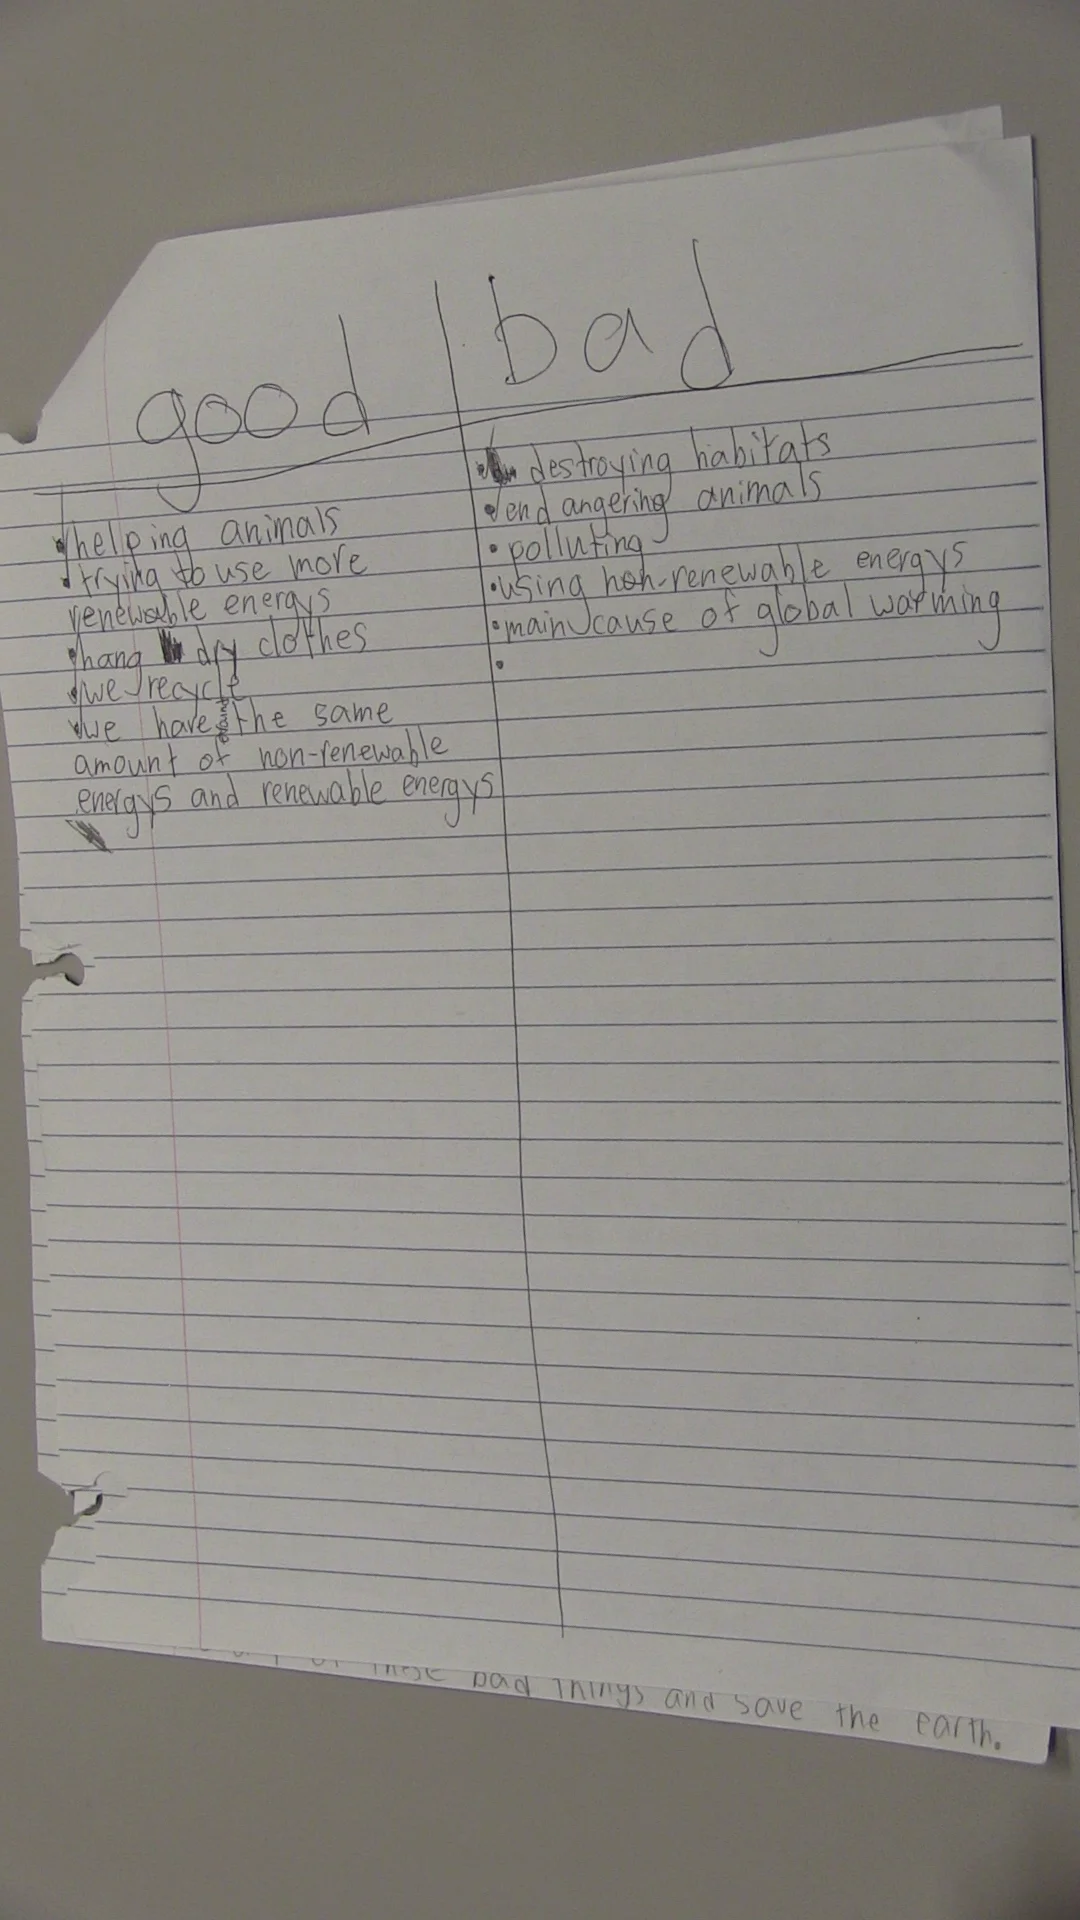 good | bad
• helping animals
• trying to use more
renewable energys
• hang dry clothes
• we recycle
• we have the same
amount of non-renewable
energys and renewable energys
• destroying habitats
• endangering animals
• polluting
• using non-renewable energys
• main cause of global warming
•
these bad things and save the earth.